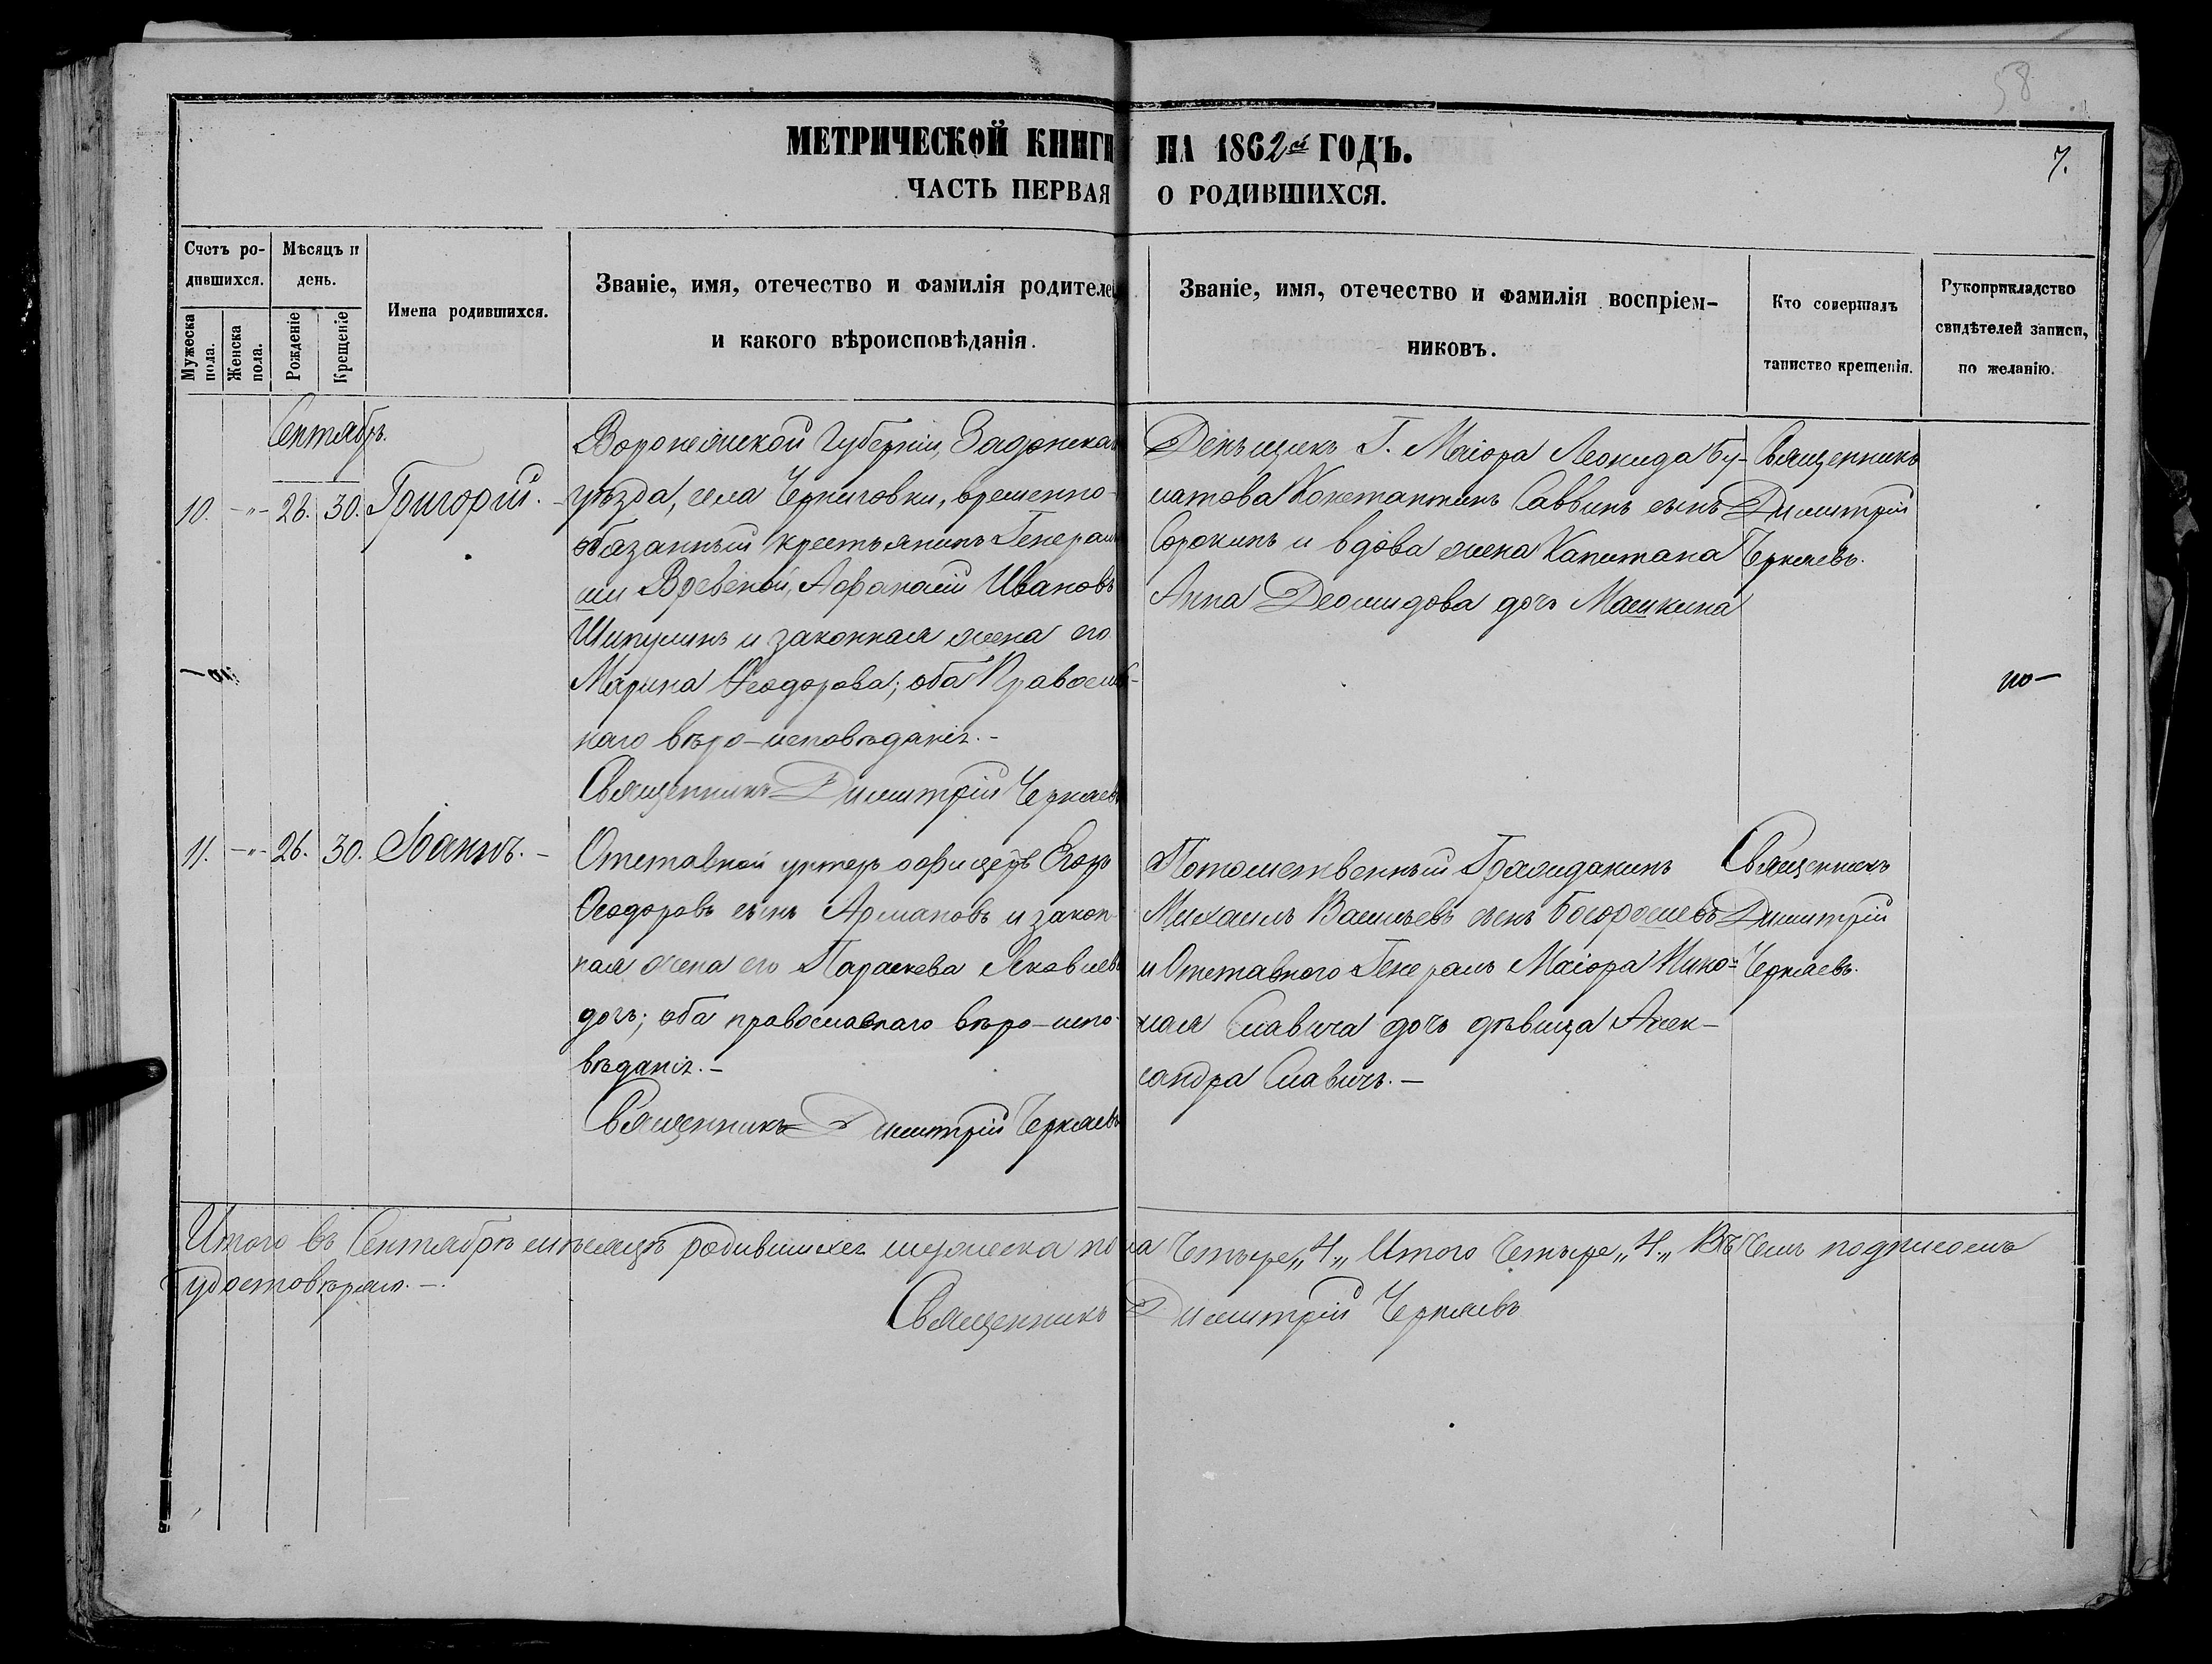 58
МЕТРИЧЕСКОЙ КНИГИ НА 1862ой ГОДЪ.
7.
ЧАСТЬ ПЕРВАЯ О РОДИВШИХСЯ.
Счетъ ро-
дившихся.
Мужеска пола.
Женска пола.
Мѣсяцъ и
день.
Рожденіе
Крещеніе
Имена родившихся.
Званіе, имя, отечество и фамилія родителей
и какого вѣроисповѣданія.
Званіе, имя, отечество и фамилія воспріем-
никовъ.
Кто совершалъ
таинство крещенія.
Рукоприкладство
свидѣтелей записи,
по желанію.
Сентябрь.
10. -"- 28. 30. Григорій.
Воронежской Губерніи, Задонскаго
уѣзда, села Черниговки, временно-
обязанный крестьянинъ Генераль
ши Вревской, Афанасій Ивановъ
Шипулинъ и законная жена его
Марина Ѳеодорова; оба Православ-
наго вѣро-исповѣданія.-
Священникъ Димитрій Черняевъ
Деньщикъ Г. Маіора Леонида Бу-
латова Константинъ Саввинъ сынъ
Сорокинъ и вдова жена Капитана
Анна Деомидова дочь Машкина
Священникъ
Димитрій
Черняевъ.
по-
11. -"- 26. 30. Іоаннъ.-
Отставной унтеръ офицеръ Егоръ
Ѳеодоровъ сынъ Армановъ и закон
ная жена его Параскева Яковлева
дочь; оба православнаго вѣро-испо-
вѣданія.-
Священникъ Димитрій Черняевъ
Потомственный Гражданинъ
Михаилъ Васильевъ сынъ
и Отставного Генералъ Маіора Нико-
лая Славича дочь дѣвица Алек-
сандра Славичъ.-
Священникъ
Димитрій
Черняевъ.
Итого въ Сентябрѣ мѣсяцѣ родившихся мужеска пола Четыре „4„ Итого Четыре „4„ Въ чемъ подписомъ
удостовѣряю.-.
Священникъ Димитрій Черняевъ